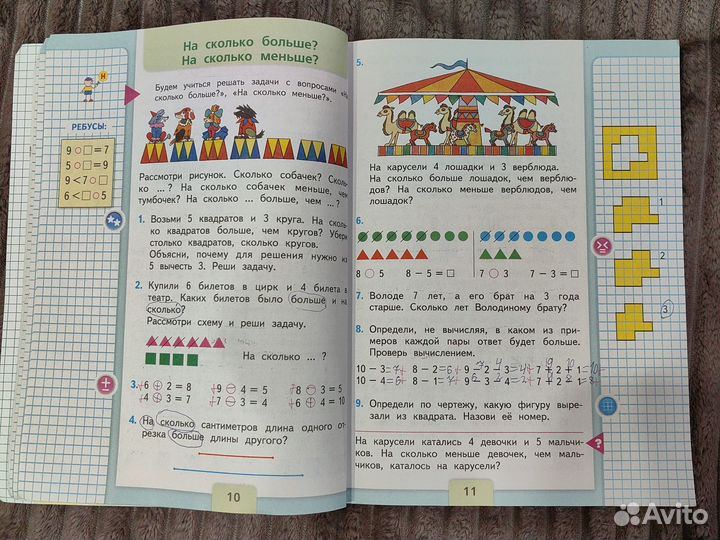 На сколько больше?
На сколько меньше?
Будем учиться решать задачи с вопросами «На
сколько больше?», «На сколько меньше?».
Н
РЕБУСЫ:
9 ○ □ = 7
5 ○ □ = 9
9 < 7 ○ □
6 < □ ○ 5
Рассмотри рисунок. Сколько собачек? Сколь-
ко ... ? На сколько собачек меньше, чем
тумбочек? На сколько ... больше, чем ... ?
1. Возьми 5 квадратов и 3 круга. На сколь-
ко квадратов больше, чем кругов? Убери
столько квадратов, сколько кругов.
Объясни, почему для решения нужно из
5 вычесть 3. Реши задачу.
2. Купили 6 билетов в цирк и 4 билета в
театр. Каких билетов было больше и на
сколько?
Рассмотри схему и реши задачу.
На сколько ... ?
3. 6 + 2 = 8 9 − 4 = 5 8 − 3 = 5
4 + 3 = 7 7 − 3 = 4 6 + 4 = 10
4. На сколько сантиметров длина одного от-
резка больше длины другого?
10
5.
На карусели 4 лошадки и 3 верблюда.
На сколько больше лошадок, чем верблю-
дов? На сколько меньше верблюдов, чем
лошадок?
6.
8 ○ 5 8 − 5 = □ 7 ○ 3 7 − 3 = □
7. Володе 7 лет, а его брат на 3 года
старше. Сколько лет Володиному брату?
8. Определи, не вычисляя, в каком из при-
меров каждой пары ответ будет больше.
Проверь вычислением.
10 − 3 = 7 8 − 2 = 6 9 − 2 − 3 = 4 7 + 2 + 1 = 10
10 − 4 = 6 8 − 1 = 7 9 − 3 − 4 = 2 7 + 2 − 1 = 8
9. Определи по чертежу, какую фигуру выре-
зали из квадрата. Назови её номер.
На карусели катались 4 девочки и 5 мальчи-
ков. На сколько меньше девочек, чем маль-
чиков, каталось на карусели?
?
11
1
2
3
Avito